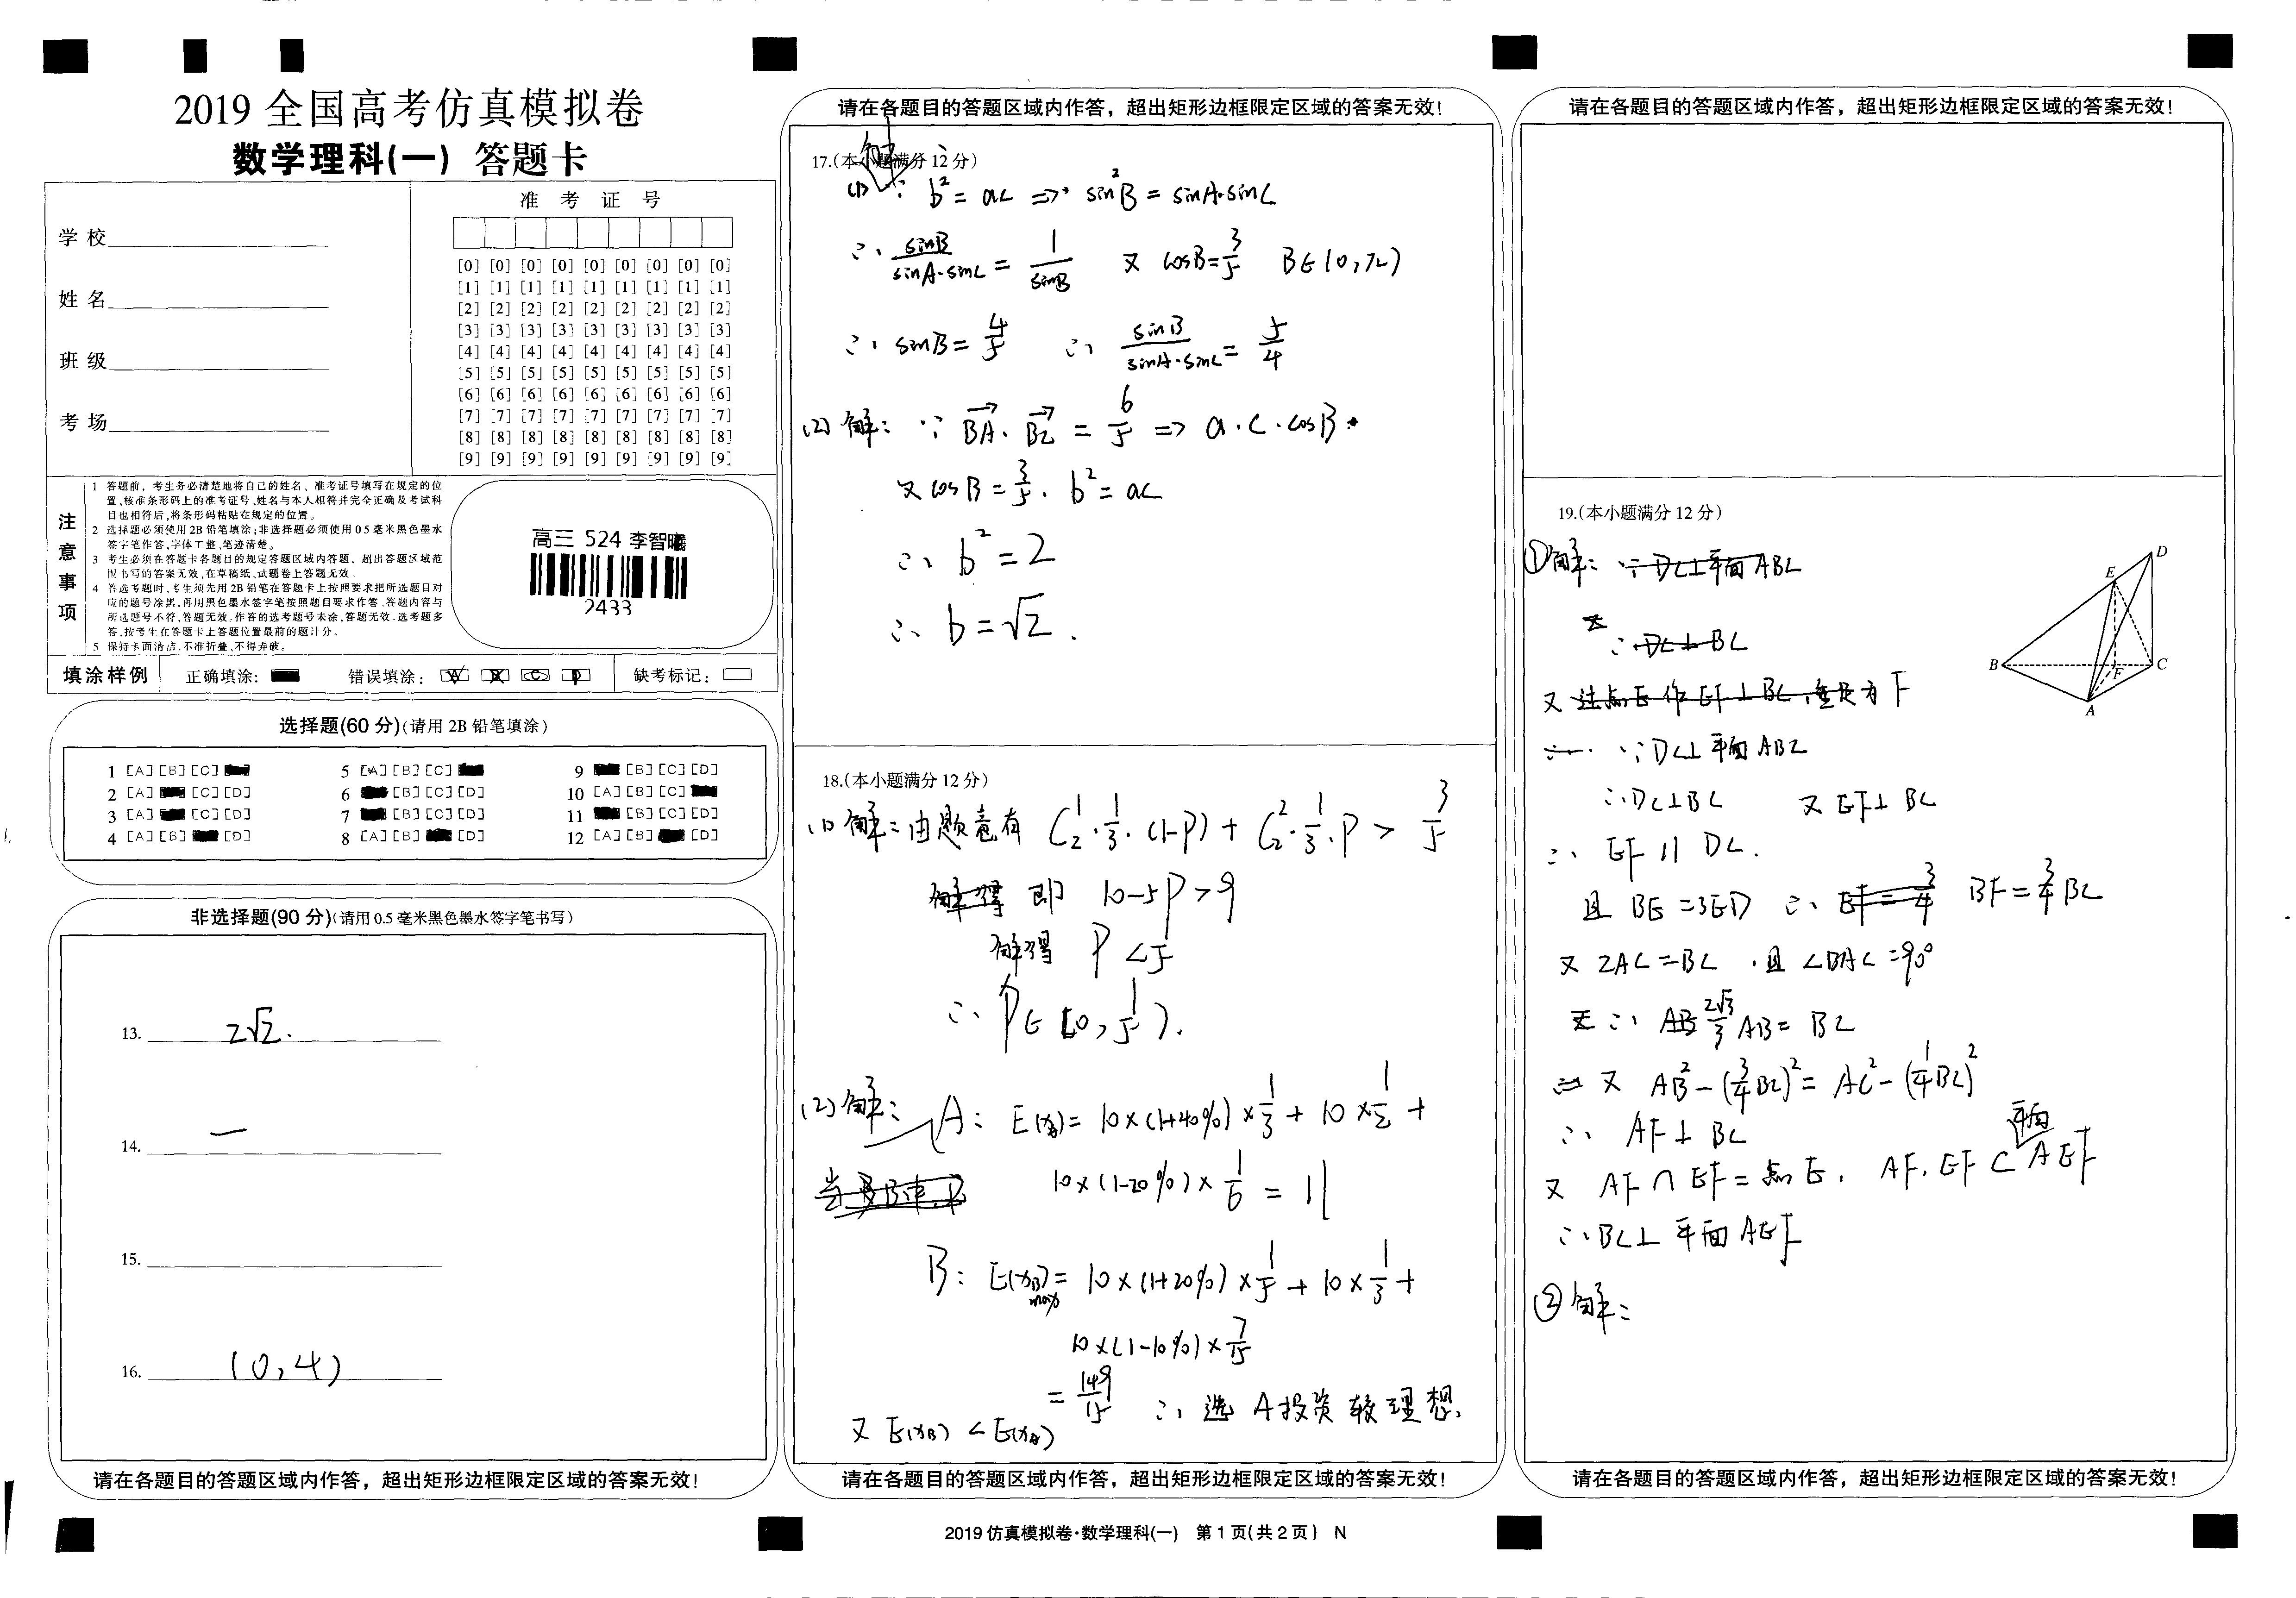 2019 全国高考仿真模拟卷
数学理科(一) 答题卡
准 考 证 号
学 校
姓 名
班 级
考 场
[0] [0] [0] [0] [0] [0] [0] [0] [0]
[1] [1] [1] [1] [1] [1] [1] [1] [1]
[2] [2] [2] [2] [2] [2] [2] [2] [2]
[3] [3] [3] [3] [3] [3] [3] [3] [3]
[4] [4] [4] [4] [4] [4] [4] [4] [4]
[5] [5] [5] [5] [5] [5] [5] [5] [5]
[6] [6] [6] [6] [6] [6] [6] [6] [6]
[7] [7] [7] [7] [7] [7] [7] [7] [7]
[8] [8] [8] [8] [8] [8] [8] [8] [8]
[9] [9] [9] [9] [9] [9] [9] [9] [9]
注意事项
1 答题前，考生务必清楚地将自己的姓名、准考证号填写在规定的位
置,核准条形码上的准考证号、姓名与本人相符并完全正确及考试科
目也相符后,将条形码粘贴在规定的位置。
2 选择题必须使用2B铅笔填涂;非选择题必须使用05毫米黑色墨水
签字笔作答,字体工整、笔迹清楚。
3 考生必须在答题卡各题目的规定答题区域内答题，超出答题区域范
围书写的答案无效,在草稿纸、试题卷上答题无效。
4 答选考题时,考生须先用2B铅笔在答题卡上按照要求把所选题目对
应的题号涂黑,再用黑色墨水签字笔按照题目要求作答。答题内容与
所选题号不符,答题无效。作答的选考题号未涂,答题无效。选考题多
答,按考生在答题卡上答题位置最前的题计分。
5 保持卡面清洁,不准折叠,不得弄破。
高三 524 李智曦
2433
填涂样例 正确填涂: 错误填涂: 缺考标记:
选择题(60 分)(请用 2B 铅笔填涂)
1 [A] [B] [C] 5 [A] [B] [C] 9 [B] [C] [D]
2 [A] [C] [D] 6 [B] [C] [D] 10 [A] [B] [C]
3 [A] [C] [D] 7 [B] [C] [D] 11 [B] [C] [D]
4 [A] [B] [D] 8 [A] [B] [D] 12 [A] [B] [D]
非选择题(90 分)(请用 0.5 毫米黑色墨水签字笔书写)
13. 2√2.
14. —
15.
16. (0,4)
请在各题目的答题区域内作答，超出矩形边框限定区域的答案无效!
请在各题目的答题区域内作答，超出矩形边框限定区域的答案无效!
17.(本小题满分 12 分)
解
(1) ∵ b²=ac => sin²B = sinA·sinC
∴ sinB/(sinA·sinC) = 1/sinB 又 cosB=3/5 B∈(0,π)
∴ sinB=4/5 ∴ sinB/(sinA·sinC) = 5/4
(2) 解: ∵ BA·BC = 6/5 => a·c·cosB
又 cosB=3/5. b²=ac
∴ b²=2
∴ b=√2.
18.(本小题满分 12 分)
(1) 解: 由题意有 C₂¹·1/3·(1-P) + C₂²·1/3·P > 3/5
解得 即 10-5P>9
解得 P<5
∴ P∈[0,1/5).
(2) 解: A: E(xA)= 10×(1+40%)×1/3 + 10×1/2 +
10×(1-20%)×1/6 = 11
B: E(xB)max= 10×(1+20%)×1/5 + 10×1/3 +
10×(1-10%)×7/15
= 149/15 ∴ 选 A投资较理想.
又 E(xB) < E(xA)
请在各题目的答题区域内作答，超出矩形边框限定区域的答案无效!
2019 仿真模拟卷·数学理科(一) 第 1 页(共 2 页) N
请在各题目的答题区域内作答，超出矩形边框限定区域的答案无效!
19.(本小题满分 12 分)
D
E
B
F
C
A
① 解: ∵ DC⊥平面 ABC
∴ DC⊥BC
又 过点E作EF⊥BC,垂足为F
∵ DC⊥平面 ABC
∴DC⊥BC 又 EF⊥BC
∴ EF // DC.
且 BE=3ED ∴ EF=3/4 BF=3/4 BC
又 2AC=BC ,且 ∠BAC=90°
∴ AB 2√3/3 AB= BC
又 AB²-(3/4BC)²=AC²-(1/4BC)²
∴ AF⊥BC
又 AF∩EF=点E, AF,EF⊂平面AEF
∴BC⊥平面AEF
② 解:
请在各题目的答题区域内作答，超出矩形边框限定区域的答案无效!